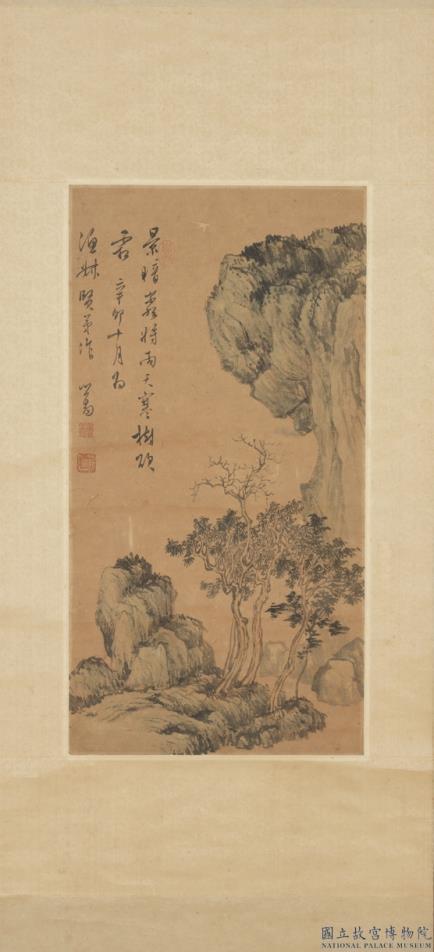 景暗巖將雨天寒樹欲
霜 辛卯十月為
賢弟作 心畬
國立故宮博物院
NATIONAL PALACE MUSEUM